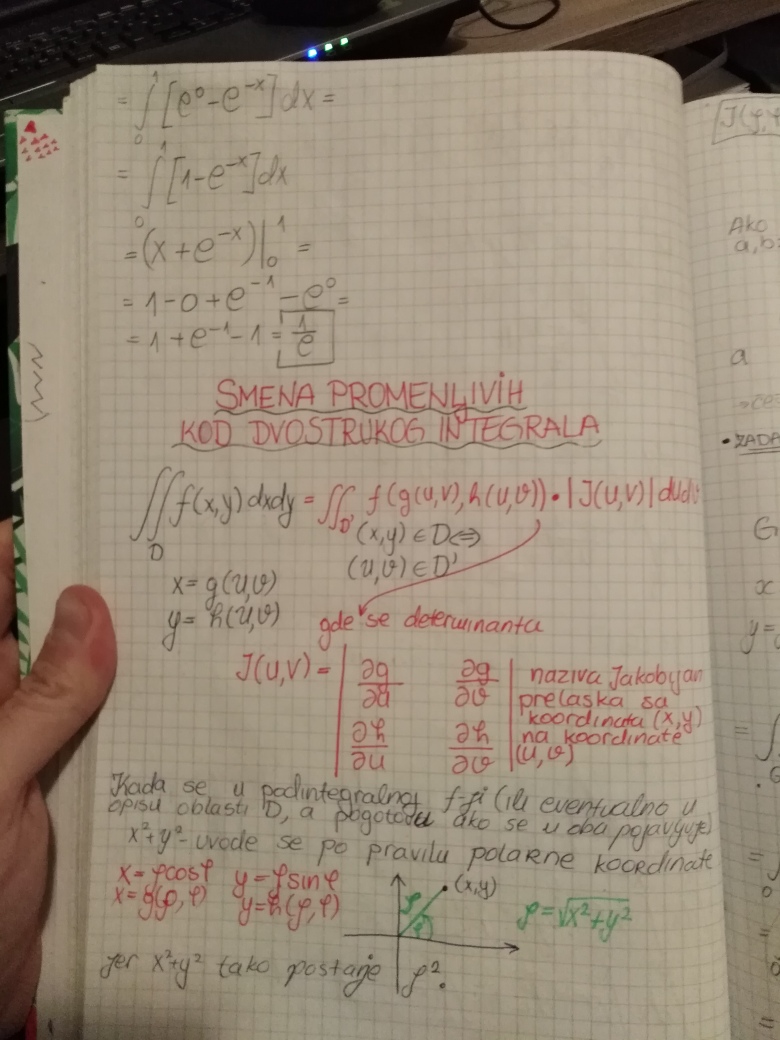 = ∫₀¹ [e⁰-e⁻ˣ] dx =
= ∫₀¹ [1-e⁻ˣ] dx
= (x+e⁻ˣ)|₀¹ =
= 1-0+e⁻¹-e⁰ =
= 1+e⁻¹-1 = 1/e
SMENA PROMENLJIVIH
KOD DVOSTRUKOG INTEGRALA
∬_D f(x,y) dxdy = ∬_D' f(g(u,v), h(u,v)) • |J(u,v)| dudv
(x,y) ∈ D ⇔
(u,v) ∈ D'
x = g(u,v)
y = h(u,v)
gde se determinanta
J(u,v) = | ∂g/∂u ∂g/∂v |
| ∂h/∂u ∂h/∂v |
naziva Jakobijan
prelaska sa
koordinata (x,y)
na koordinate
(u,v)
Kada se u podintegralnoj f-ji (ili eventualno u
opisu oblasti D, a pogotovu ako se u oba pojavljuje)
x²+y² - uvode se po pravilu polarne koordinate
x = ρcosφ y = ρsinφ
x = g(ρ,φ) y = h(ρ,φ)
(x,y)
ρ
φ
ρ = √x²+y²
jer x²+y² tako postaje ρ².
Ako
a,b
a
• ZADA
G
x
y =